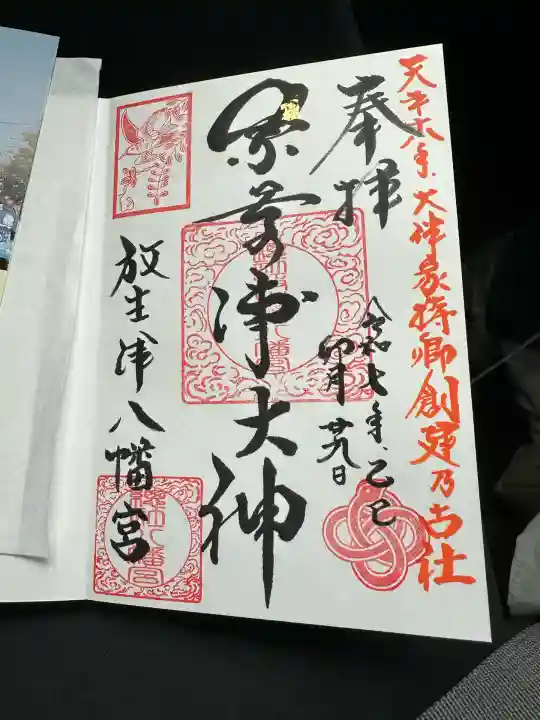 天平十八年、大伴家持卿創建乃古社
奉拝
令和七年、乙巳
四月廿九日
奈呉 大神
放生津八幡宮